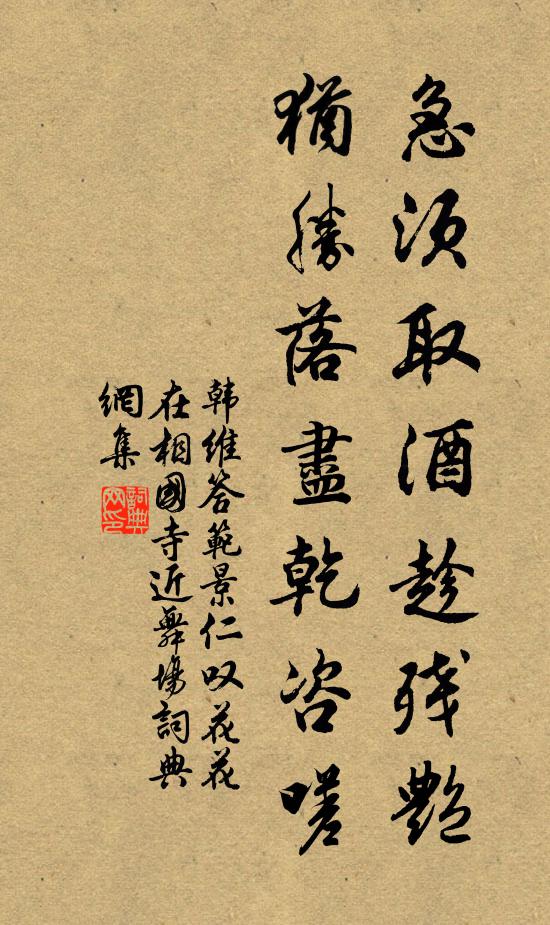 急須取酒趁残艷
猶勝落盡乾咨嗟
韩維答範景仁叹花花
在相國寺近舞場詞典
網集
詞典
网印